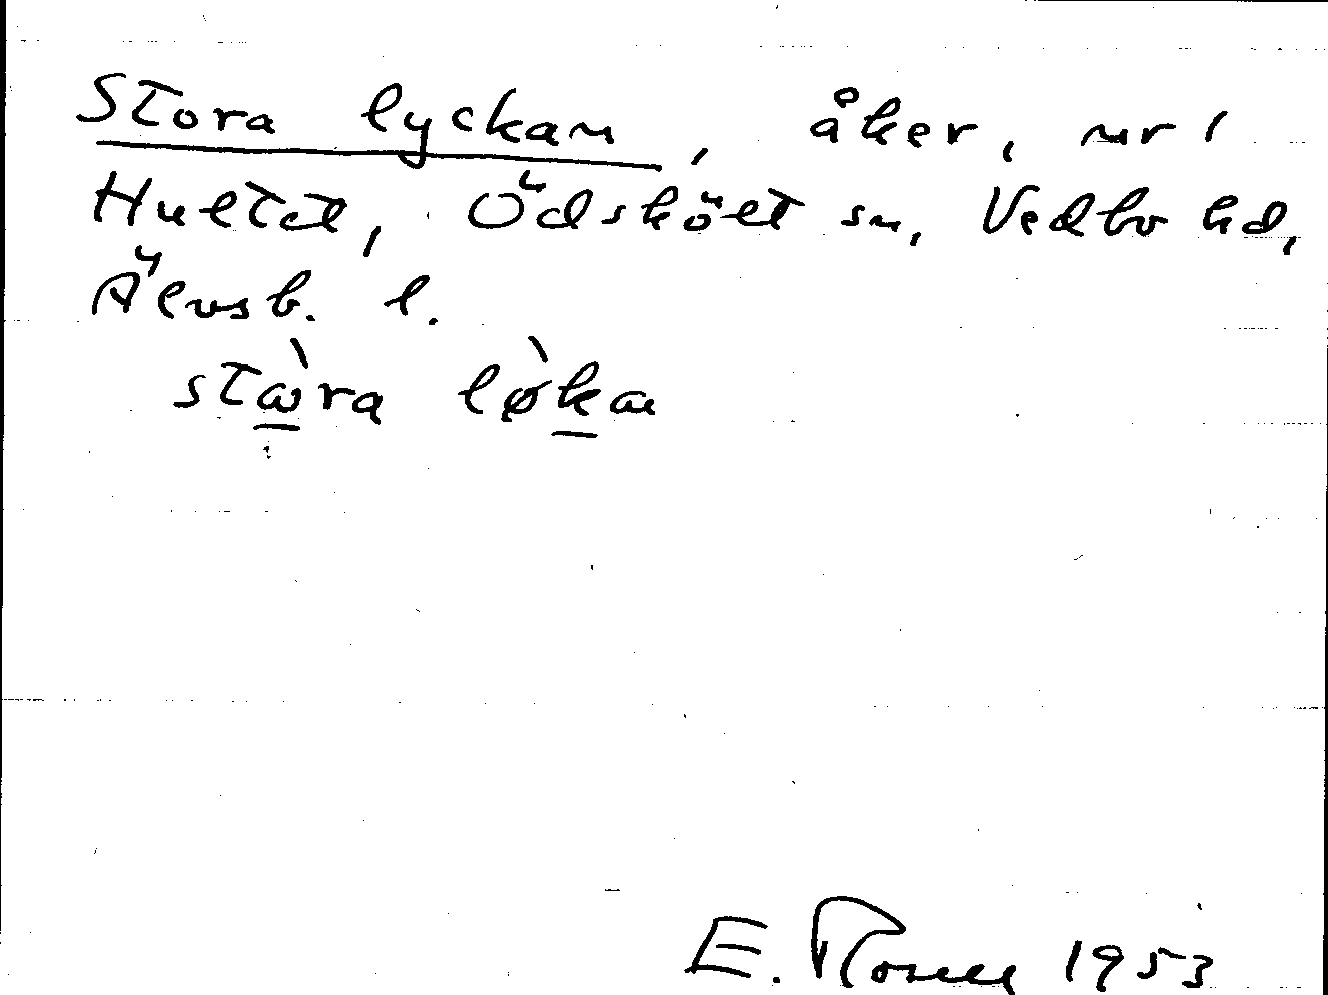 Stora lyckan, åker, nr 1
Hultet, Ödskölt sn, Vedbo hd,
Älvsb. l.
stɷ̀ra lø̀kan
E. Rosell 1953